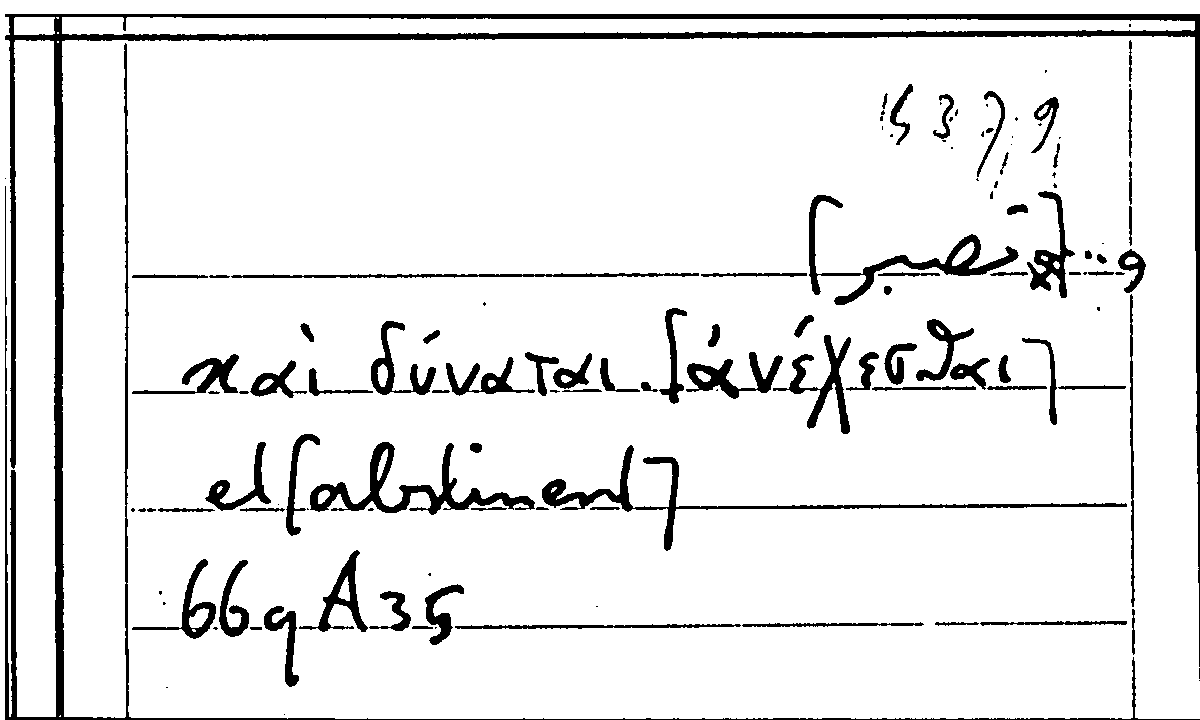 5379
καὶ δύναται. [ἀνέχεσθαι]
et [abstinent]
669 A 35